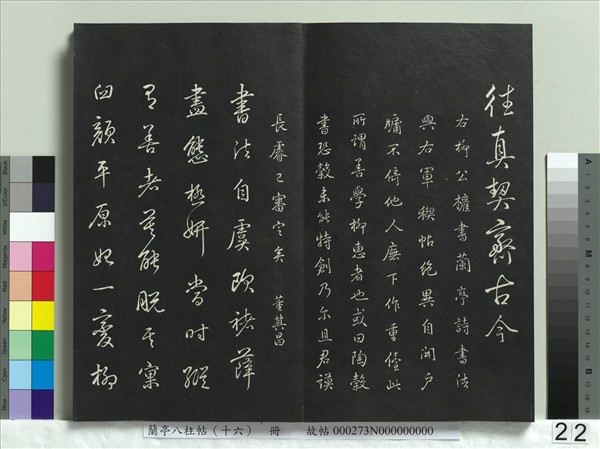 往真契齊古今
右柳公權書蘭亭詩書法
與右軍禊帖絕異自開戶
牖不倚他人廡下作重儓此
所謂善學柳惠者也或曰陶穀
書恐穀未能特創乃尔且君謨
長睿已審定矣 董其昌
書法自虞歐褚薛
盡態極妍當時縱
有善者莫能脫其窠
臼顏平原始一變柳
蘭亭八柱帖（十六） 冊 故帖 000273N000000000
22
Black
3/Color
White
Magenta
Red
Yellow
Green
Cyan
Blue
A
M
B